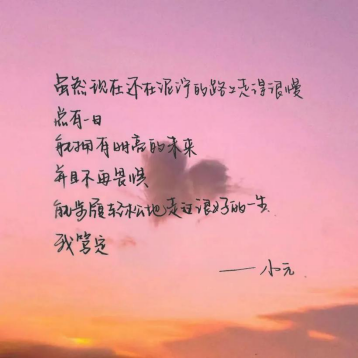 虽然现在还在泥泞的路上走得很慢
总有一日
能拥有明亮的未来
并且不再畏惧
能步履轻松地走过很好的一步
我笃定
——小元